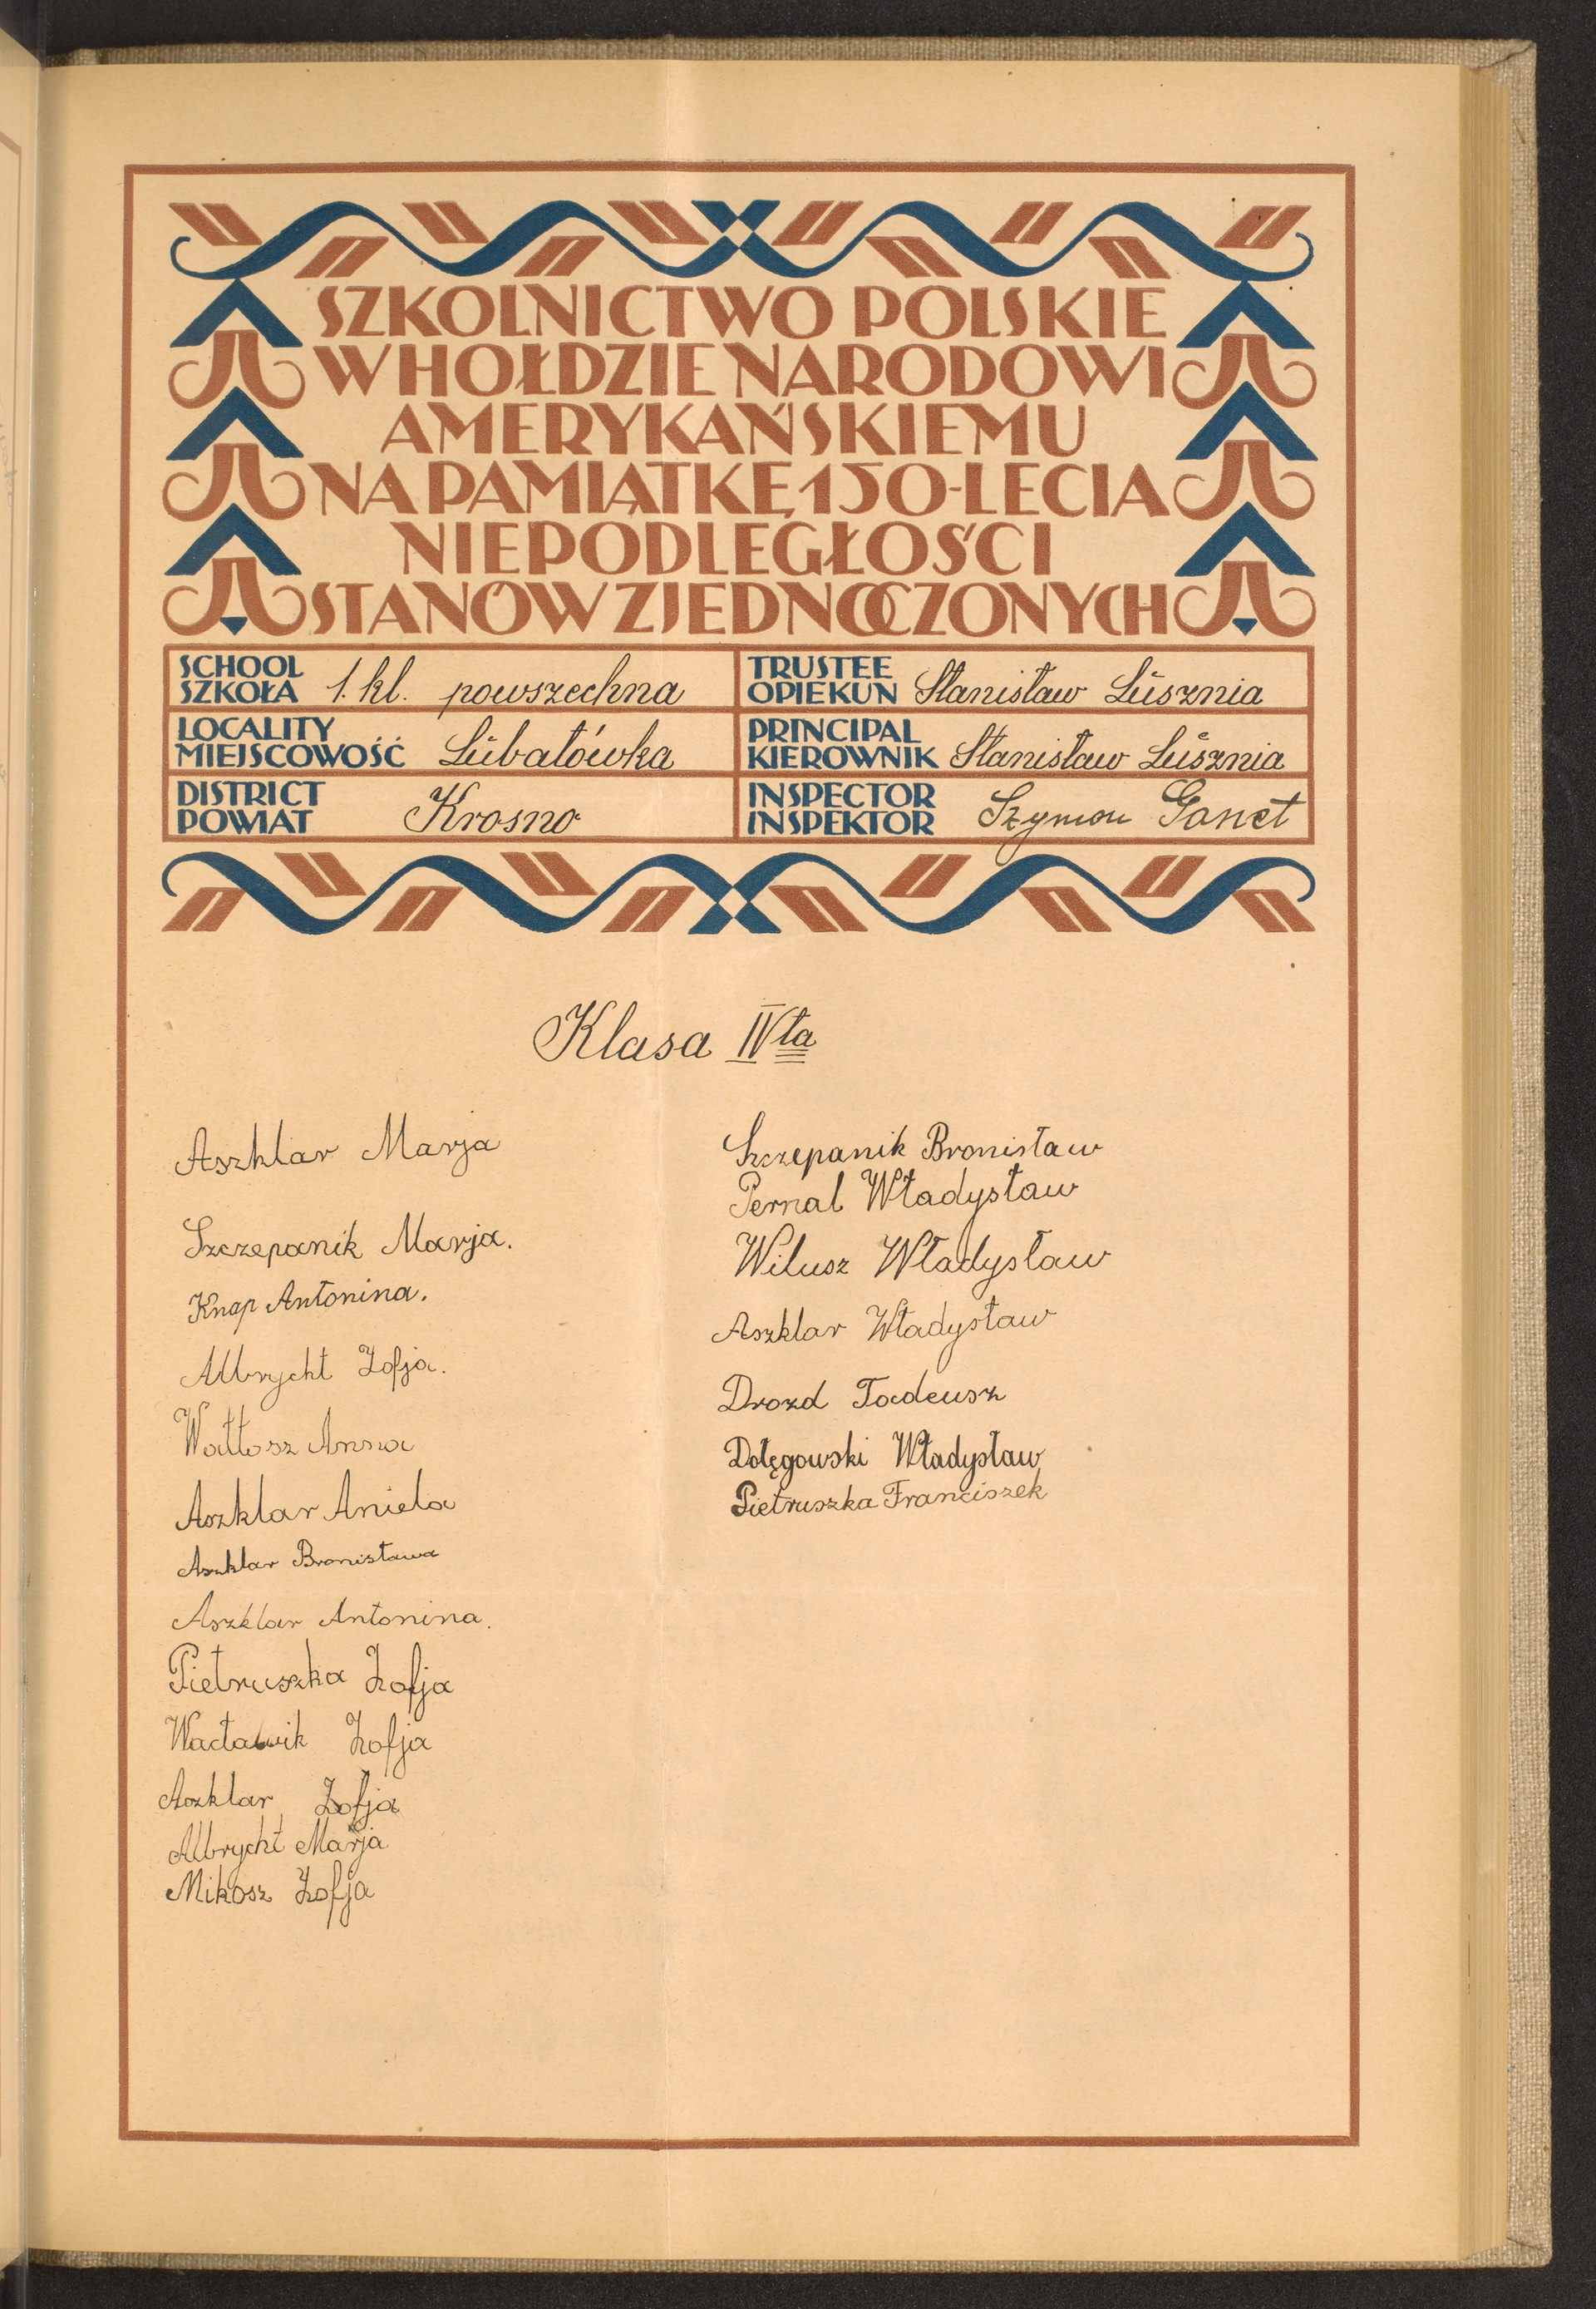 SZKOLNICTWO POLSKIE
W HOŁDZIE NARODOWI
AMERYKAŃSKIEMU
NA PAMIĄTKĘ 150-LECIA
NIEPODLEGŁOŚCI
STANÓW ZJEDNOCZONYCH
SCHOOL
SZKOŁA 1. kl. powszechna
TRUSTEE
OPIEKUN Stanisław Lusznia
LOCALITY
MIEJSCOWOŚĆ Lubatówka
PRINCIPAL
KIEROWNIK Stanisław Lusznia
DISTRICT
POWIAT Krosno
INSPECTOR
INSPEKTOR Szymon
Klasa IVta
Aszklar Marja
Szczepanik Marja.
Knap Antonina.
Albrycht Zofja.
Wołtosz Anna
Aszklar Aniela
Aszklar Bronisława
Aszklar Antonina.
Pietruszka Zofja
Wacławik Zofja
Aszklar Zofja
Albrycht Marja
Mikosz Zofja
Szczepanik Bronisław
Pernal Władysław
Wilusz Władysław
Aszklar Władysław
Drozd Tadeusz
Dołęgowski Władysław
Pietruszka Franciszek